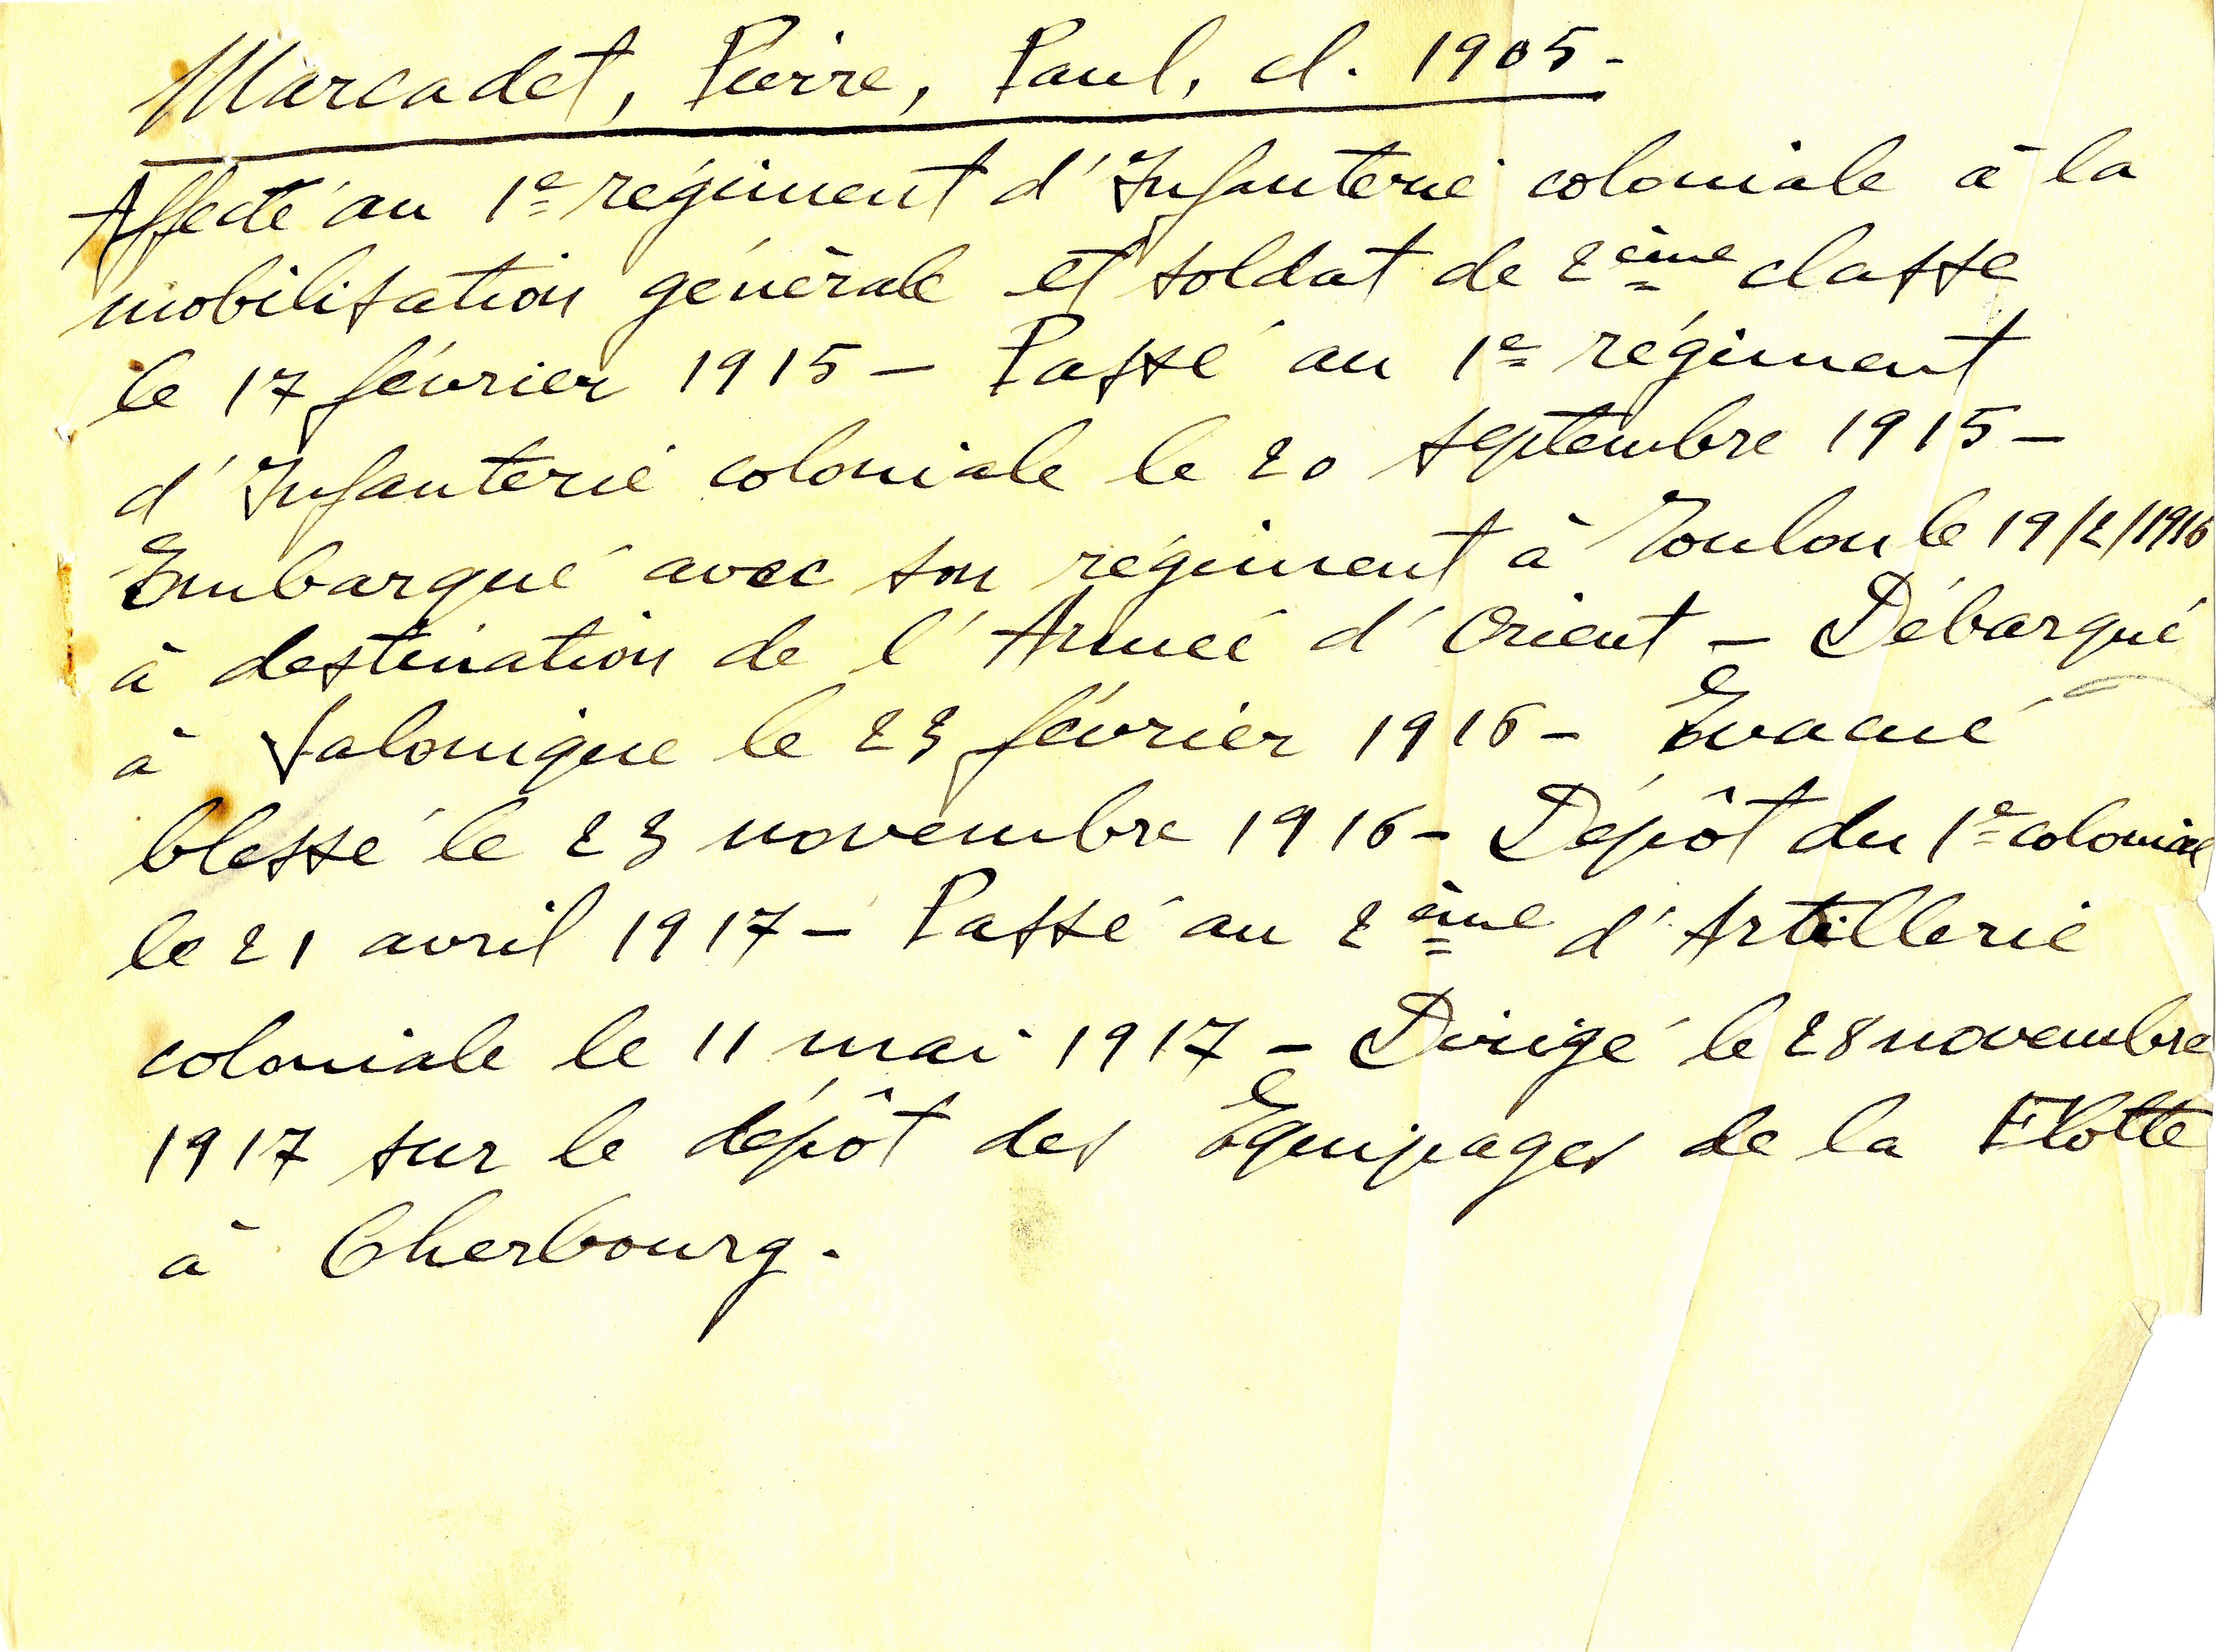 Marcadet, Pierre, Paul, cl. 1905-
Affecté au 1e régiment d'Infanterie coloniale à la
mobilisation générale et soldat de 2ème classe
le 17 février 1915 - Passé au 1e régiment
d'Infanterie coloniale le 20 septembre 1915 -
Embarqué avec son régiment à Toulon le 19/2/1916
à destination de l'Armée d'Orient - Débarqué
à Salonique le 23 février 1916 - Evacué
blessé le 23 novembre 1916 - Dépôt du 1e colonial
le 21 avril 1917 - Passé au 2ème d'Artillerie
coloniale le 11 mai 1917 - Dirigé le 28 novembre
1917 sur le dépôt des Equipages de la Flotte
à Cherbourg.